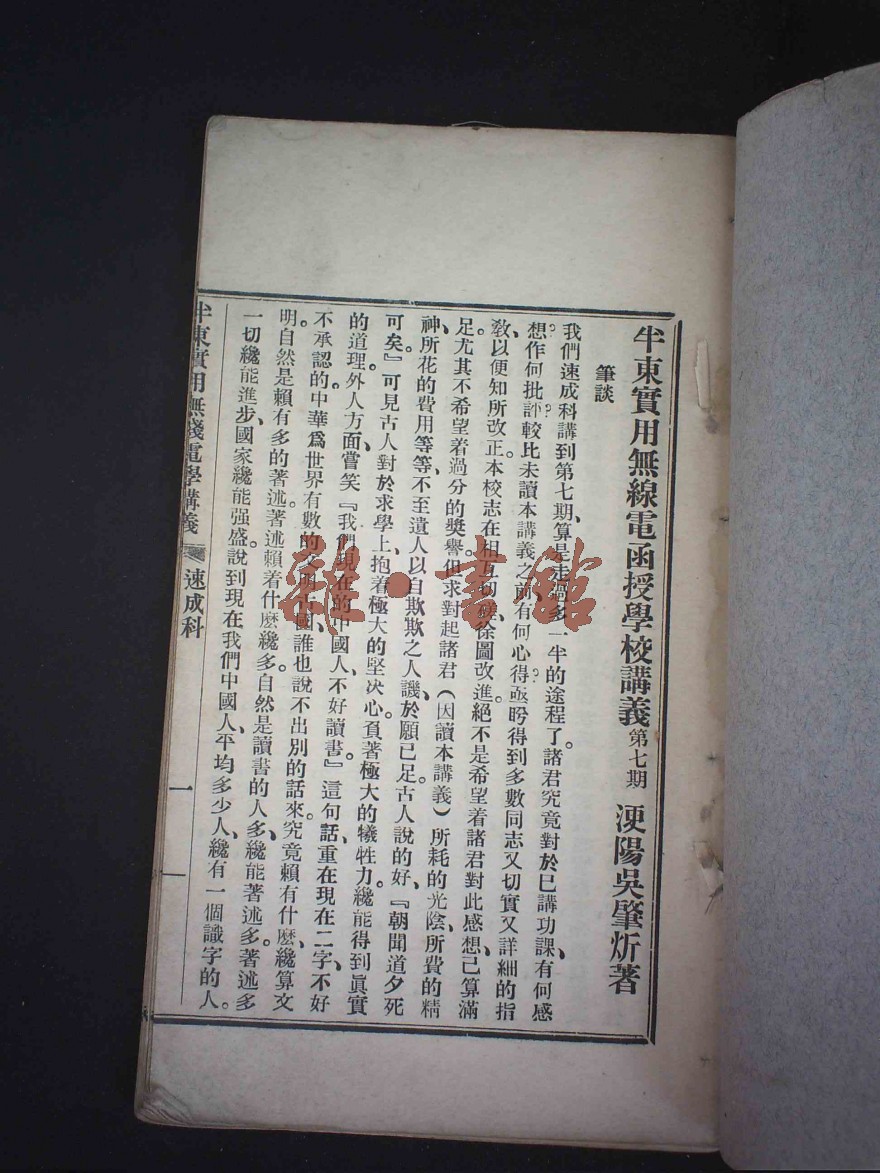 半東實用無線電函授學校講義 第七期 浭陽吳肇炘著
筆談
我們速成科講到第七期、算是走過多一半的途程了。諸君究竟對於已講功課有何感
想?作何批評?較比未讀本講義之前有何心得?亟盼得到多數同志又切實又詳細的指
敎、以便知所改正。本校志在相互切磋、徐圖改進、絕不是希望着諸君對此感想已算滿
足。尤其不希望着過分的獎譽。但求對起諸君(因讀本講義)所耗的光陰、所費的精
神、所花的費用等等、不至遺人以自欺欺之人譏、於願已足。古人說的好、『朝聞道夕死
可矣』可見古人對於求學上、抱着極大的堅决心、負著極大的犧牲力、纔能得到眞實
的道理。外人方面嘗笑『我們現在的中國人、不好讀書』這句話、重在現在二字、不好
不承認的。中華爲世界有數的文明古國、誰也說不出別的話來。究竟賴有什麽、纔算文
明。自然是賴有多的著述。著述賴着什麽纔多。自然是讀書的人多、纔能著述多。著述多
一切纔能進步、國家纔能强盛。說到現在我們中國人、平均多少人、纔有一個識字的人。
半東實用無綫電學講義 速成科 一
雜·書館